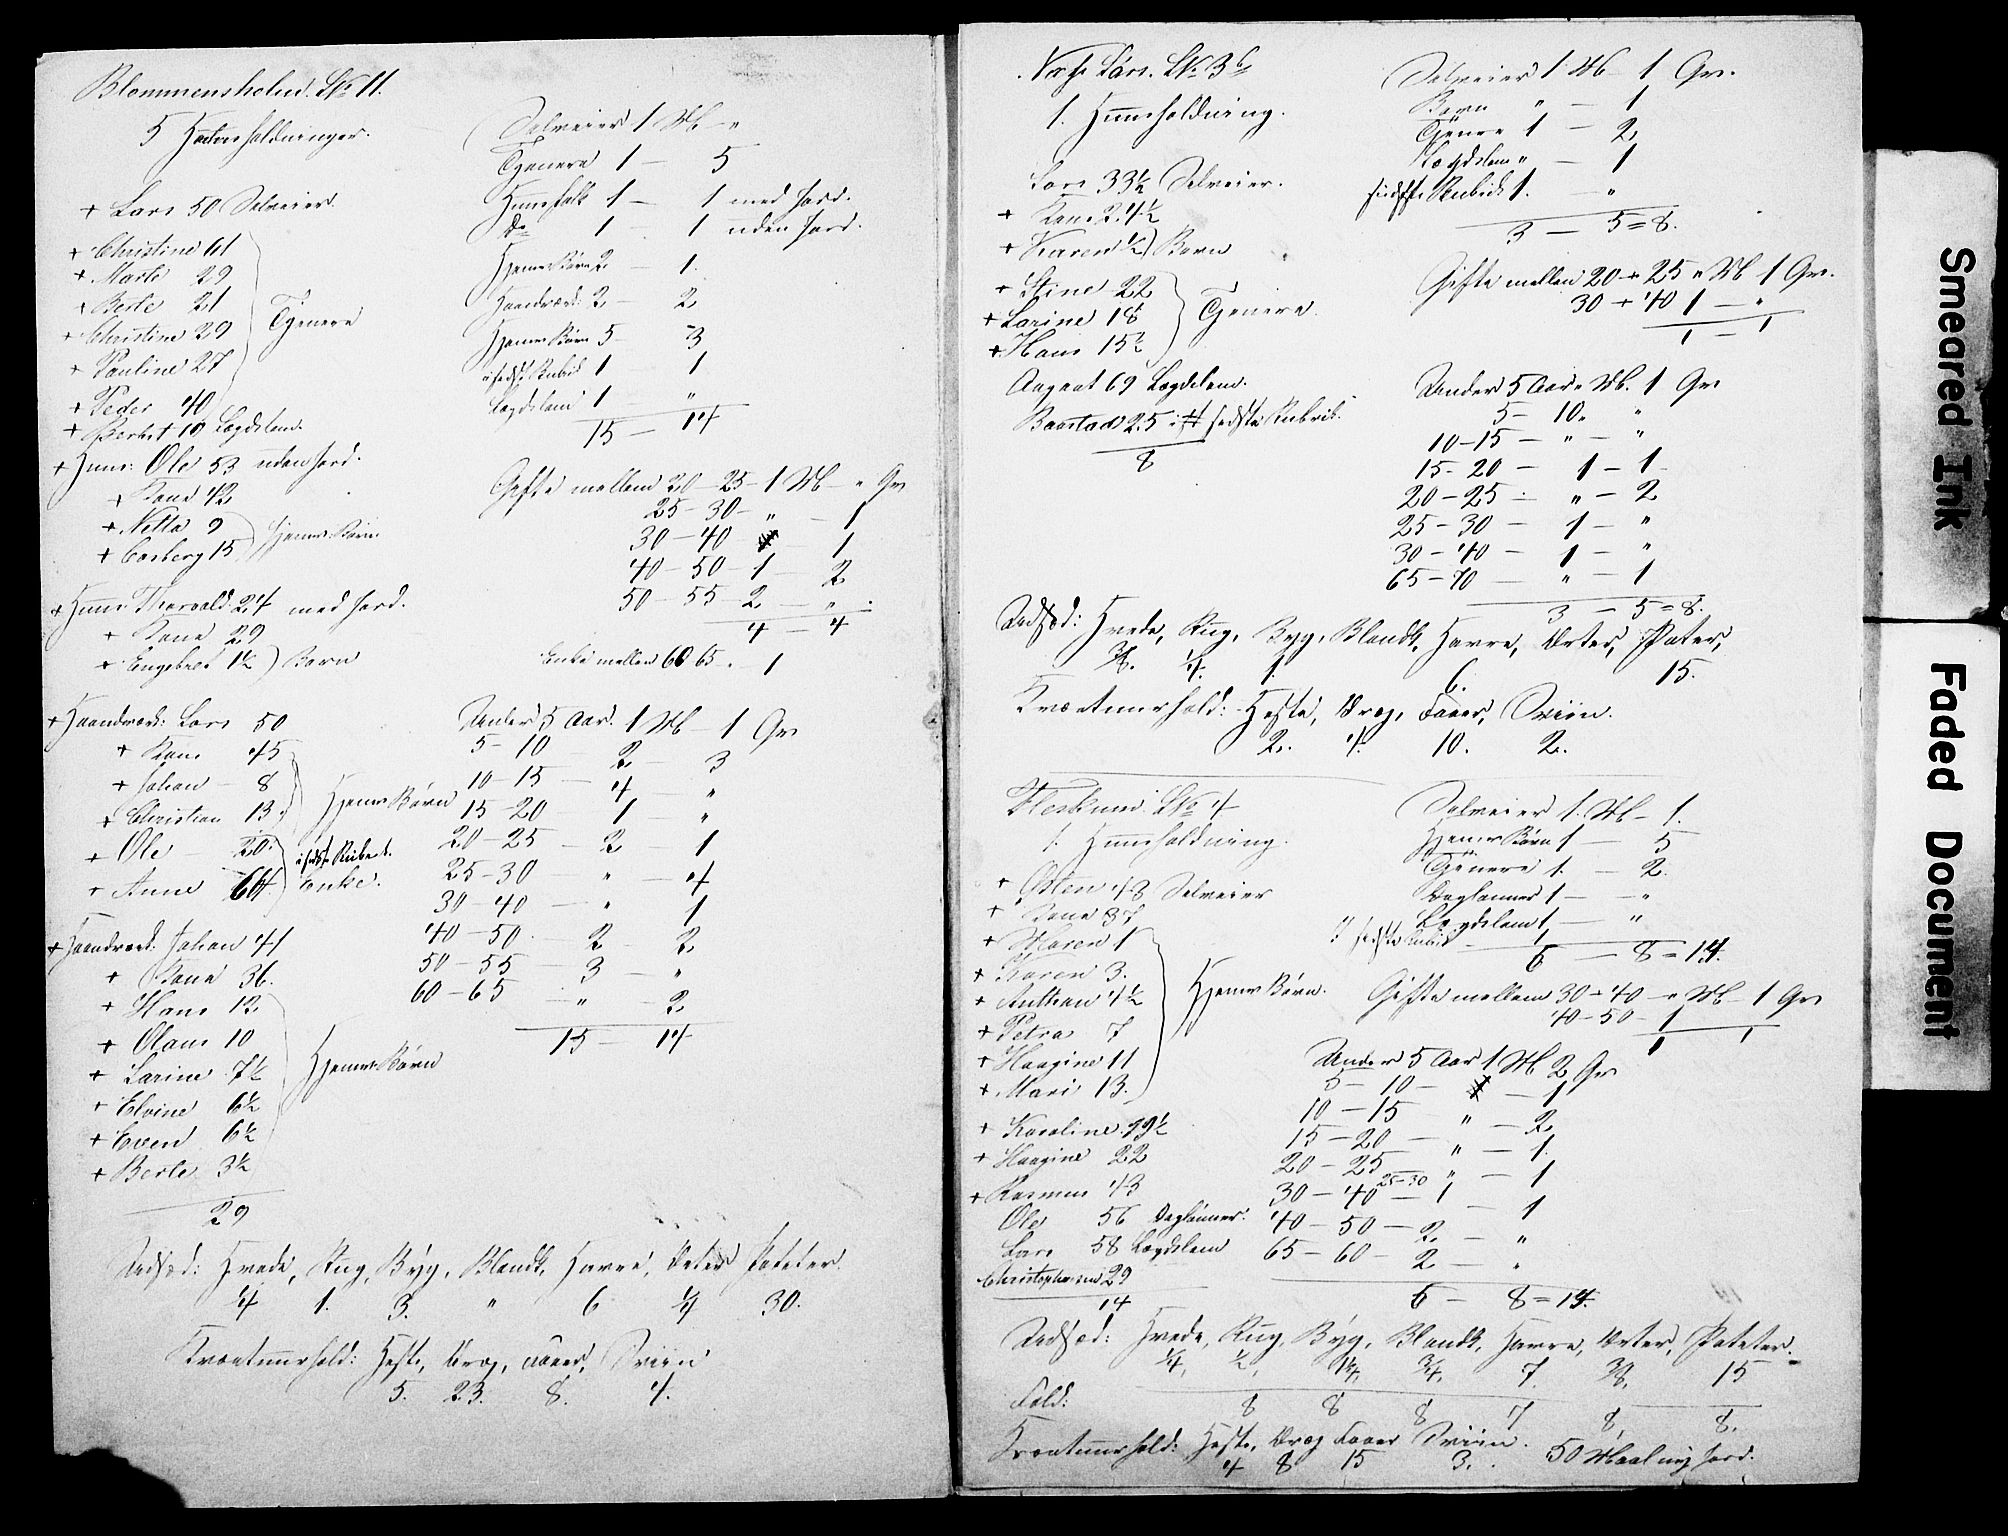 Blommensholm. L№ 11.
5 Huusholdninger.
+ Lars 50 Selveier.
+ Christine 61
+ Marte 29
+ Berte 21
+ Christine 29
+ Pauline 27
Tjenere
+ Peder 40
+ 19 Lægdslem.
+ Huus: Ole 53 uden Jord.
+ Kone 42
+ Netta 9
+ 15
Hjemv Børn
+ Huus Thorvald 24 med Jord.
+ Kone 29
+ Engebret 1½ ) Barn
+ Haandværk: Lars 50
+ Kone 45
+ Johan - 8
+ Christian 13
Hjemv Børn
+ Ole - 20
+ Anne 64
Enke.
+ Haandværk: Johan 41
+ Kone 36.
+ Hans 12
+ Olaus 10
+ Larine 7½
+ Elvine 6½
+ Even 6½
+ Berte 3½
Hjemv Børn
29
Selveier 1 M - "
Tjenere 1 — 5
Huusfolk 1 — 1 med Jord.
do 1 — 1 uden Jord.
Hjemv Børn 2 — 1.
Haandværk: 2 — 2
Hjemv Børn 5 — 3
Rubrik 1 — 1
Lægdslem 1 — "
15 — 14
Gifte mellem 20 - 25 - 1 M - " Qv
25 - 30 - " - 1
30 - 40 - 1
40 - 50 - 1 - 2
50 - 55 - 2 - "
4 - 4
Enke mellem 60 65 . 1
Under 5 Aar. 1 M - 1 Qv
5 - 10 2 - 3
10 - 15 - 4 - "
15 - 20 1 - "
20 - 25 - 2 - 1
25 - 30 - " - 4
30 - 40 - " 1
40 - 50 - 2 - 2
50 - 55 - 3 - "
60 - 65 - " 2
15 - 14
Udsæd: Hvede, Rug, Byg, Blandk. Havre, Erter Poteter.
¼ 1. 3. " 6 ¼ 30.
Kreaturhold: Heste, Qvæg, Faarer, Sviin
5. 23. 8. 4.
L№ 3b
1. Huusholdning.
Lars 33½ Selveier.
+ Kone 24½
+ Karen ½ ) Barn
+ Stine 22
+ Larine 18
+ Hans 15½
Tjenere.
August 69 Lægdslem.
Baastad 25 i sidste Rubrik.
8
Selveier 1 M - 1 Qv.
Børn " — 1
Tjenere 1 — 2
Lægdslem " — 1
sidste Rubrik 1. — "
3 — 5 = 8.
Gifte mellem 20 + 25 " M 1 Qv.
30 + 40 1 - "
1 - 1
Under 5 Aar " M. 1 Qv
5 - 10 " "
10 - 15 - " - "
15 - 20 - 1 - 1
20 - 25 - " - 2
25 - 30 - 1 - "
30 - 40 - 1 - "
65 - 70 - " - 1
3 - 5 = 8.
Udsæd: Hvede, Rug, Byg, Blandk, Havre, Erter, Poteter,
⅜. ¼. 1. 6. 15.
Kreaturhold: Heste, Qvæg, Faarer, Sviin.
2. 4. 10. 2.
L№ 4
1. Huusholdning.
+ Osten 43 Selveier
+ Kone 37
+ Maren 1
+ Karen 3.
+ Anthon 4½
+ Petra 7
+ Haagine 11
+ Mari 13.
Hjemv Børn.
+ Karoline 19½
+ Haagine 22
+ Rasmus 43
Ole 56 Daglønner.
Lars 58 Lægdslem
29
14
Selveier 1. M - 1.
Hjemv Børn 1 — 5
Tjenere 1. — 2
Daglønner 1 — "
Lægdslem 1 — "
sidste Rubrik 1
6 — 8 = 14.
Gifte mellem 30 + 40 - " M - 1 Qv
40 - 50 - 1
1 1
Under 5 Aar 1 M 2 Qv
5 - 10 - - 1
10 - 15 " - 2
15 - 20 - " - 1.
20 - 25 " - 1
25 - 30
30 - 40 - 1 - 1
40 - 50 - 2 - "
65 - 60 - 2 - "
6 - 8 = 14.
Udsæd: Hvede, Rug, Byg, Blandk, Havre, Erter, Poteter.
¼, ½, 1¼, ¾, 7. ⅜, 15
Fold: 8 8 8 7 8, 8.
Kreaturhold: Heste, Qvæg Faarer Sviin.
4 8 15 3.
50 Maal Jord.
Smeared Ink
Faded Document